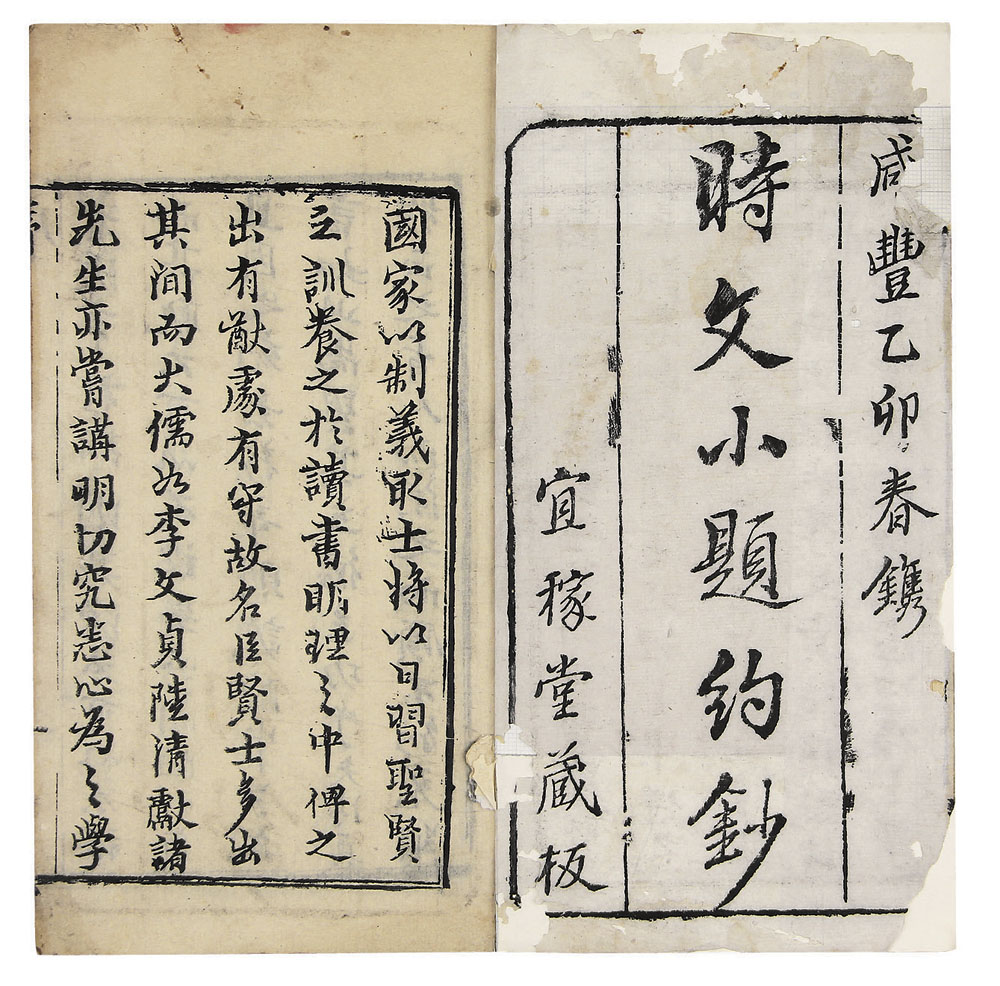 咸豐乙卯春鐫
時文小題約鈔
宜稼堂藏板
國家以制義取士將以日習聖賢
之訓養之於讀書明理之中俾之
出有猷處有守故名臣賢士多出
其间而大儒如李文貞陸清獻諸
先生亦嘗講明切究悉心為之學